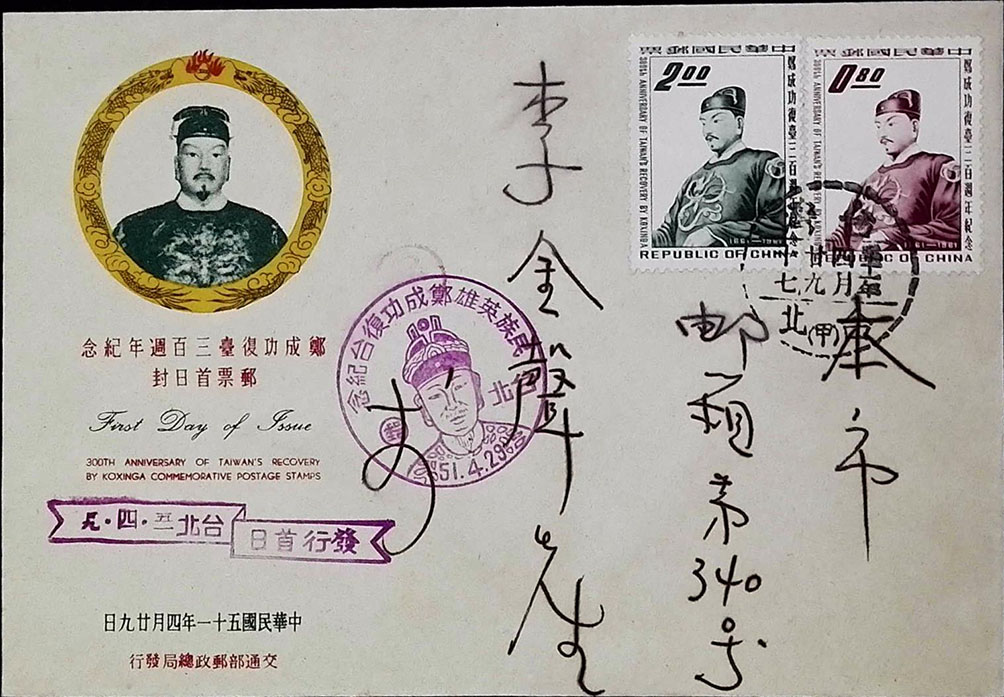 鄭成功復臺三百週年紀念
郵票首日封
First Day of Issue
300TH ANNIVERSARY OF TAIWAN'S RECOVERY
BY KOXINGA COMMEMORATIVE POSTAGE STAMPS
發行首日
台北
中華民國五十一年四月廿九日
交通部郵政總局發行
民族英雄鄭成功復台紀念
台北
郵
51.4.29
中華民國郵票
2.00
鄭成功復臺三百週年紀念
300th ANNIVERSARY OF TAIWAN'S RECOVERY BY KOXINGA
1661—1961
REPUBLIC OF CHINA
中華民國郵票
0.80
鄭成功復臺三百週年紀念
300th ANNIVERSARY OF TAIWAN'S RECOVERY BY KOXINGA
1661—1961
REPUBLIC OF CHINA
四月
廿九
北
(甲)
本市
邮箱第340号
李金聲先生